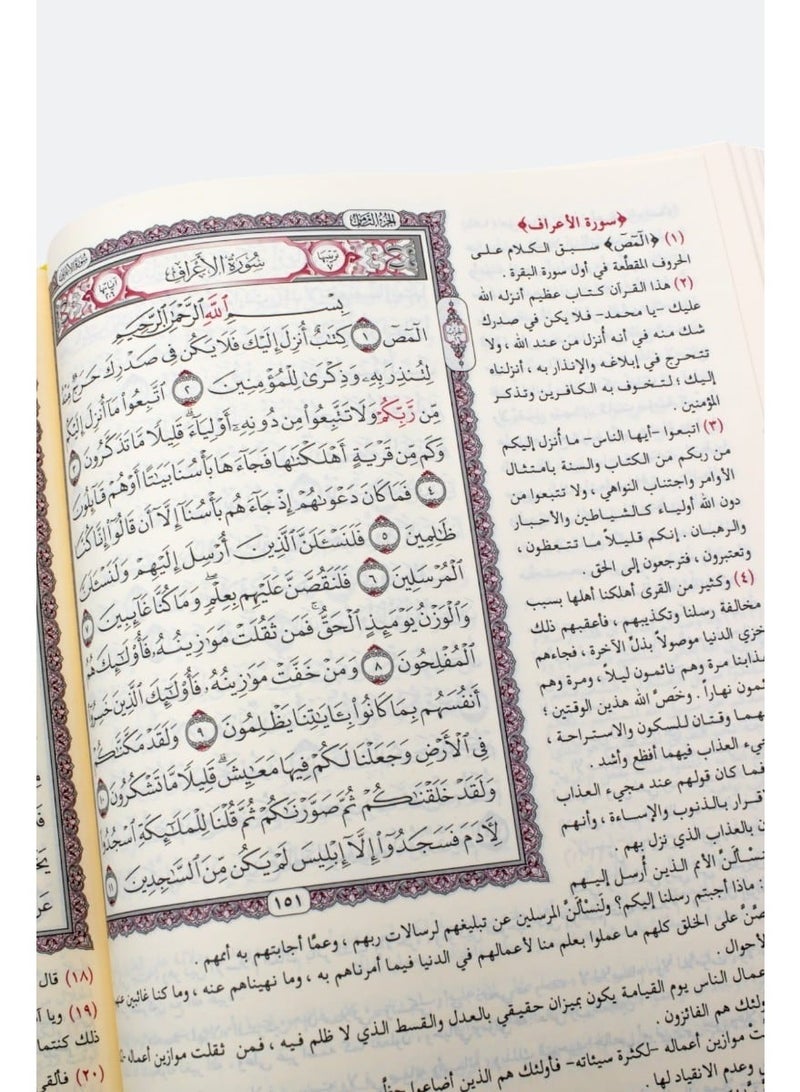 الجزء الثامن
سورة الأعراف
ترتيبها ٧
سُورَةُ الْأَعْرَافِ
آياتها ٢٠٦
بِسْمِ اللَّهِ الرَّحْمَٰنِ الرَّحِيمِ
الٓمٓصٓ ١ كِتَٰبٌ أُنزِلَ إِلَيْكَ فَلَا يَكُن فِى صَدْرِكَ حَرَجٌ مِّنْهُ
لِتُنذِرَ بِهِۦ وَذِكْرَىٰ لِلْمُؤْمِنِينَ ٢ ٱتَّبِعُوا۟ مَآ أُنزِلَ إِلَيْكُم
مِّن رَّبِّكُمْ وَلَا تَتَّبِعُوا۟ مِن دُونِهِۦٓ أَوْلِيَآءَ ۗ قَلِيلًا مَّا تَذَكَّرُونَ ٣
وَكَم مِّن قَرْيَةٍ أَهْلَكْنَٰهَا فَجَآءَهَا بَأْسُنَا بَيَٰتًا أَوْ هُمْ قَآئِلُونَ
٤ فَمَا كَانَ دَعْوَىٰهُمْ إِذْ جَآءَهُم بَأْسُنَآ إِلَّآ أَن قَالُوٓا۟ إِنَّا كُنَّا
ظَٰلِمِينَ ٥ فَلَنَسْـَٔلَنَّ ٱلَّذِينَ أُرْسِلَ إِلَيْهِمْ وَلَنَسْـَٔلَنَّ
ٱلْمُرْسَلِينَ ٦ فَلَنَقُصَّنَّ عَلَيْهِم بِعِلْمٍ ۖ وَمَا كُنَّا غَآئِبِينَ ٧
وَٱلْوَزْنُ يَوْمَئِذٍ ٱلْحَقُّ ۚ فَمَن ثَقُلَتْ مَوَٰزِينُهُۥ فَأُو۟لَٰٓئِكَ هُمُ
ٱلْمُفْلِحُونَ ٨ وَمَنْ خَفَّتْ مَوَٰزِينُهُۥ فَأُو۟لَٰٓئِكَ ٱلَّذِينَ خَسِرُوٓا۟
أَنفُسَهُم بِمَا كَانُوا۟ بِـَٔايَٰتِنَا يَظْلِمُونَ ٩ وَلَقَدْ مَكَّنَّٰكُمْ
فِى ٱلْأَرْضِ وَجَعَلْنَا لَكُمْ فِيهَا مَعَٰيِشَ ۗ قَلِيلًا مَّا تَشْكُرُونَ ١٠
وَلَقَدْ خَلَقْنَٰكُمْ ثُمَّ صَوَّرْنَٰكُمْ ثُمَّ قُلْنَا لِلْمَلَٰٓئِكَةِ ٱسْجُدُوا۟
لِـَٔادَمَ فَسَجَدُوٓا۟ إِلَّآ إِبْلِيسَ لَمْ يَكُن مِّنَ ٱلسَّٰجِدِينَ ١١
١٥١
﴿سورة الأعراف﴾
(١) ﴿الٓمٓصٓ﴾ سبق الكلام على
الحروف المقطّعة في أول سورة البقرة .
(٢) هذا القرآن كتاب عظيم أنزله الله
عليك -يا محمد- فلا يكن في صدرك
شك منه في أنه أُنزل من عند الله ، ولا
تتحرج في إبلاغه والإنذار به ، أنزلناه
إليك ؛ لتخوف به الكافرين وتذكر
المؤمنين .
(٣) اتبعوا -أيها الناس- ما أُنزل إليكم
من ربكم من الكتاب والسنة بامتثال
الأوامر واجتناب النواهي ، ولا تتبعوا من
دون الله أولياء كالشياطين والأحبار
والرهبان . إنكم قليلاً ما تتعظون ،
وتعتبرون ، فترجعون إلى الحق .
(٤) وكثير من القرى أهلكنا أهلها بسبب
مخالفة رسلنا وتكذيبهم ، فأعقبهم ذلك
خزي الدنيا موصولاً بذلّ الآخرة ، فجاءهم
عذابنا مرة وهم نائمون ليلاً ، ومرة وهم
نائمون نهاراً . وخصَّ الله هذين الوقتين ؛
وقتان للسكون والاستراحة ،
العذاب فيهما أفظع وأشد .
فما كان قولهم عند مجيء العذاب
بالذنوب والإساءة ، وأنهم
بالعذاب الذي نزل بهم .
الأمم الذين أُرسل إليهم
: ماذا أجبتم رسلنا إليكم؟ ولَنَسْألَنَّ المرسلين عن تبليغهم لرسالات ربهم ، وعمَّا أجابتهم به أممهم .
على الخلق كلهم ما عملوا بعلم منا لأعمالهم في الدنيا فيما أمرناهم به ، وما نهيناهم عنه ، وما كنا غائبين
الأحوال .
الناس يوم القيامة يكون بميزان حقيقي بالعدل والقسط الذي لا ظلم فيه ، فمن ثقلت موازين أعماله
هم الفائزون .
موازين أعماله -لكثرة سيئاته- فأولئك هم الذين أضاعوا
وعدم الانقياد لها
(١٨) قال
(١٩) ويا
ذلك
(٢٠)